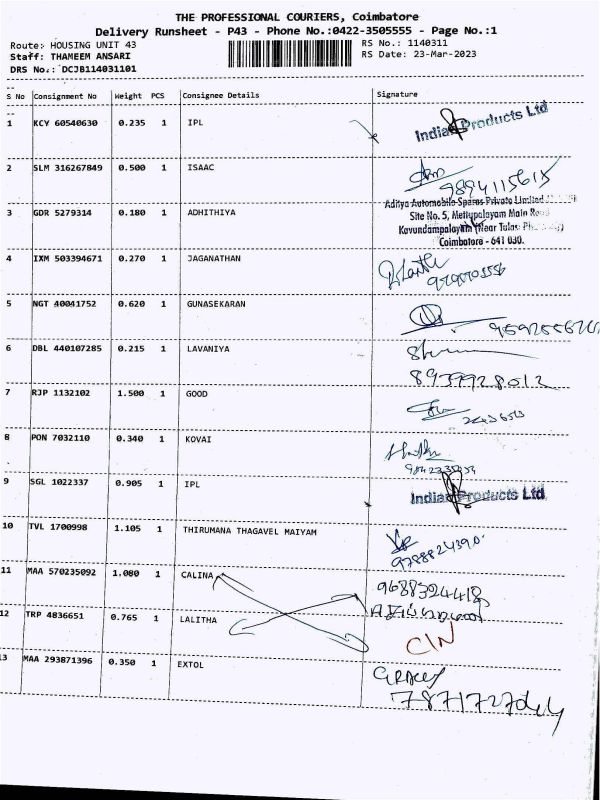 THE PROFESSIONAL COURIERS, Coimbatore
Delivery Runsheet - P43 - Phone No.:0422-3505555 - Page No.:1
Route: HOUSING UNIT 43 RS No.: 1140311
Staff: THAMEEM ANSARI RS Date: 23-Mar-2023
DRS No.: DCJB114031101
S No Consignment No Weight PCS Consignee Details Signature
1 KCY 60540630 0.235 1 IPL Indian Products Ltd
2 SLM 316267849 0.500 1 ISAAC
9894115615
3 GDR 5279314 0.180 1 ADHITHIYA
Aditya Automobile Spares Private Limited
Site No. 5, Mettupalayam Main Road
Kavundampalayam (Near Tulasi
Coimbatore - 641 030.
4 IXM 503394671 0.270 1 JAGANATHAN
5 NGT 40041752 0.620 1 GUNASEKARAN
6 DBL 440107285 0.215 1 LAVANIYA
8939928012
7 RJP 1132102 1.500 1 GOOD
8 PON 7032110 0.340 1 KOVAI
9 SGL 1022337 0.905 1 IPL Indian Products Ltd
10 TVL 1700998 1.105 1 THIRUMANA THAGAVEL MAIYAM
11 MAA 570235092 1.080 1 CALINA
9688324418
12 TRP 4836651 0.765 1 LALITHA CIN
13 MAA 293871396 0.350 1 EXTOL